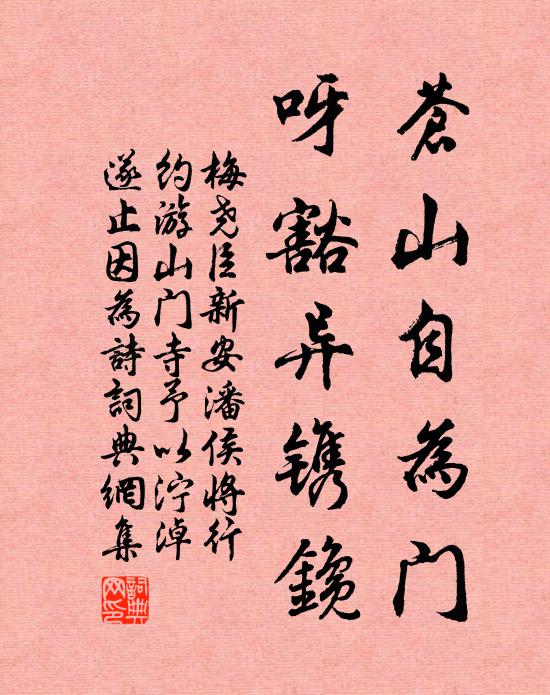 苍山自為门
呀豁异镌鑱
梅尧臣新安潘侯将行
约游山门寺予以泞淖
遂止因為詩詞典網集
詞典网印